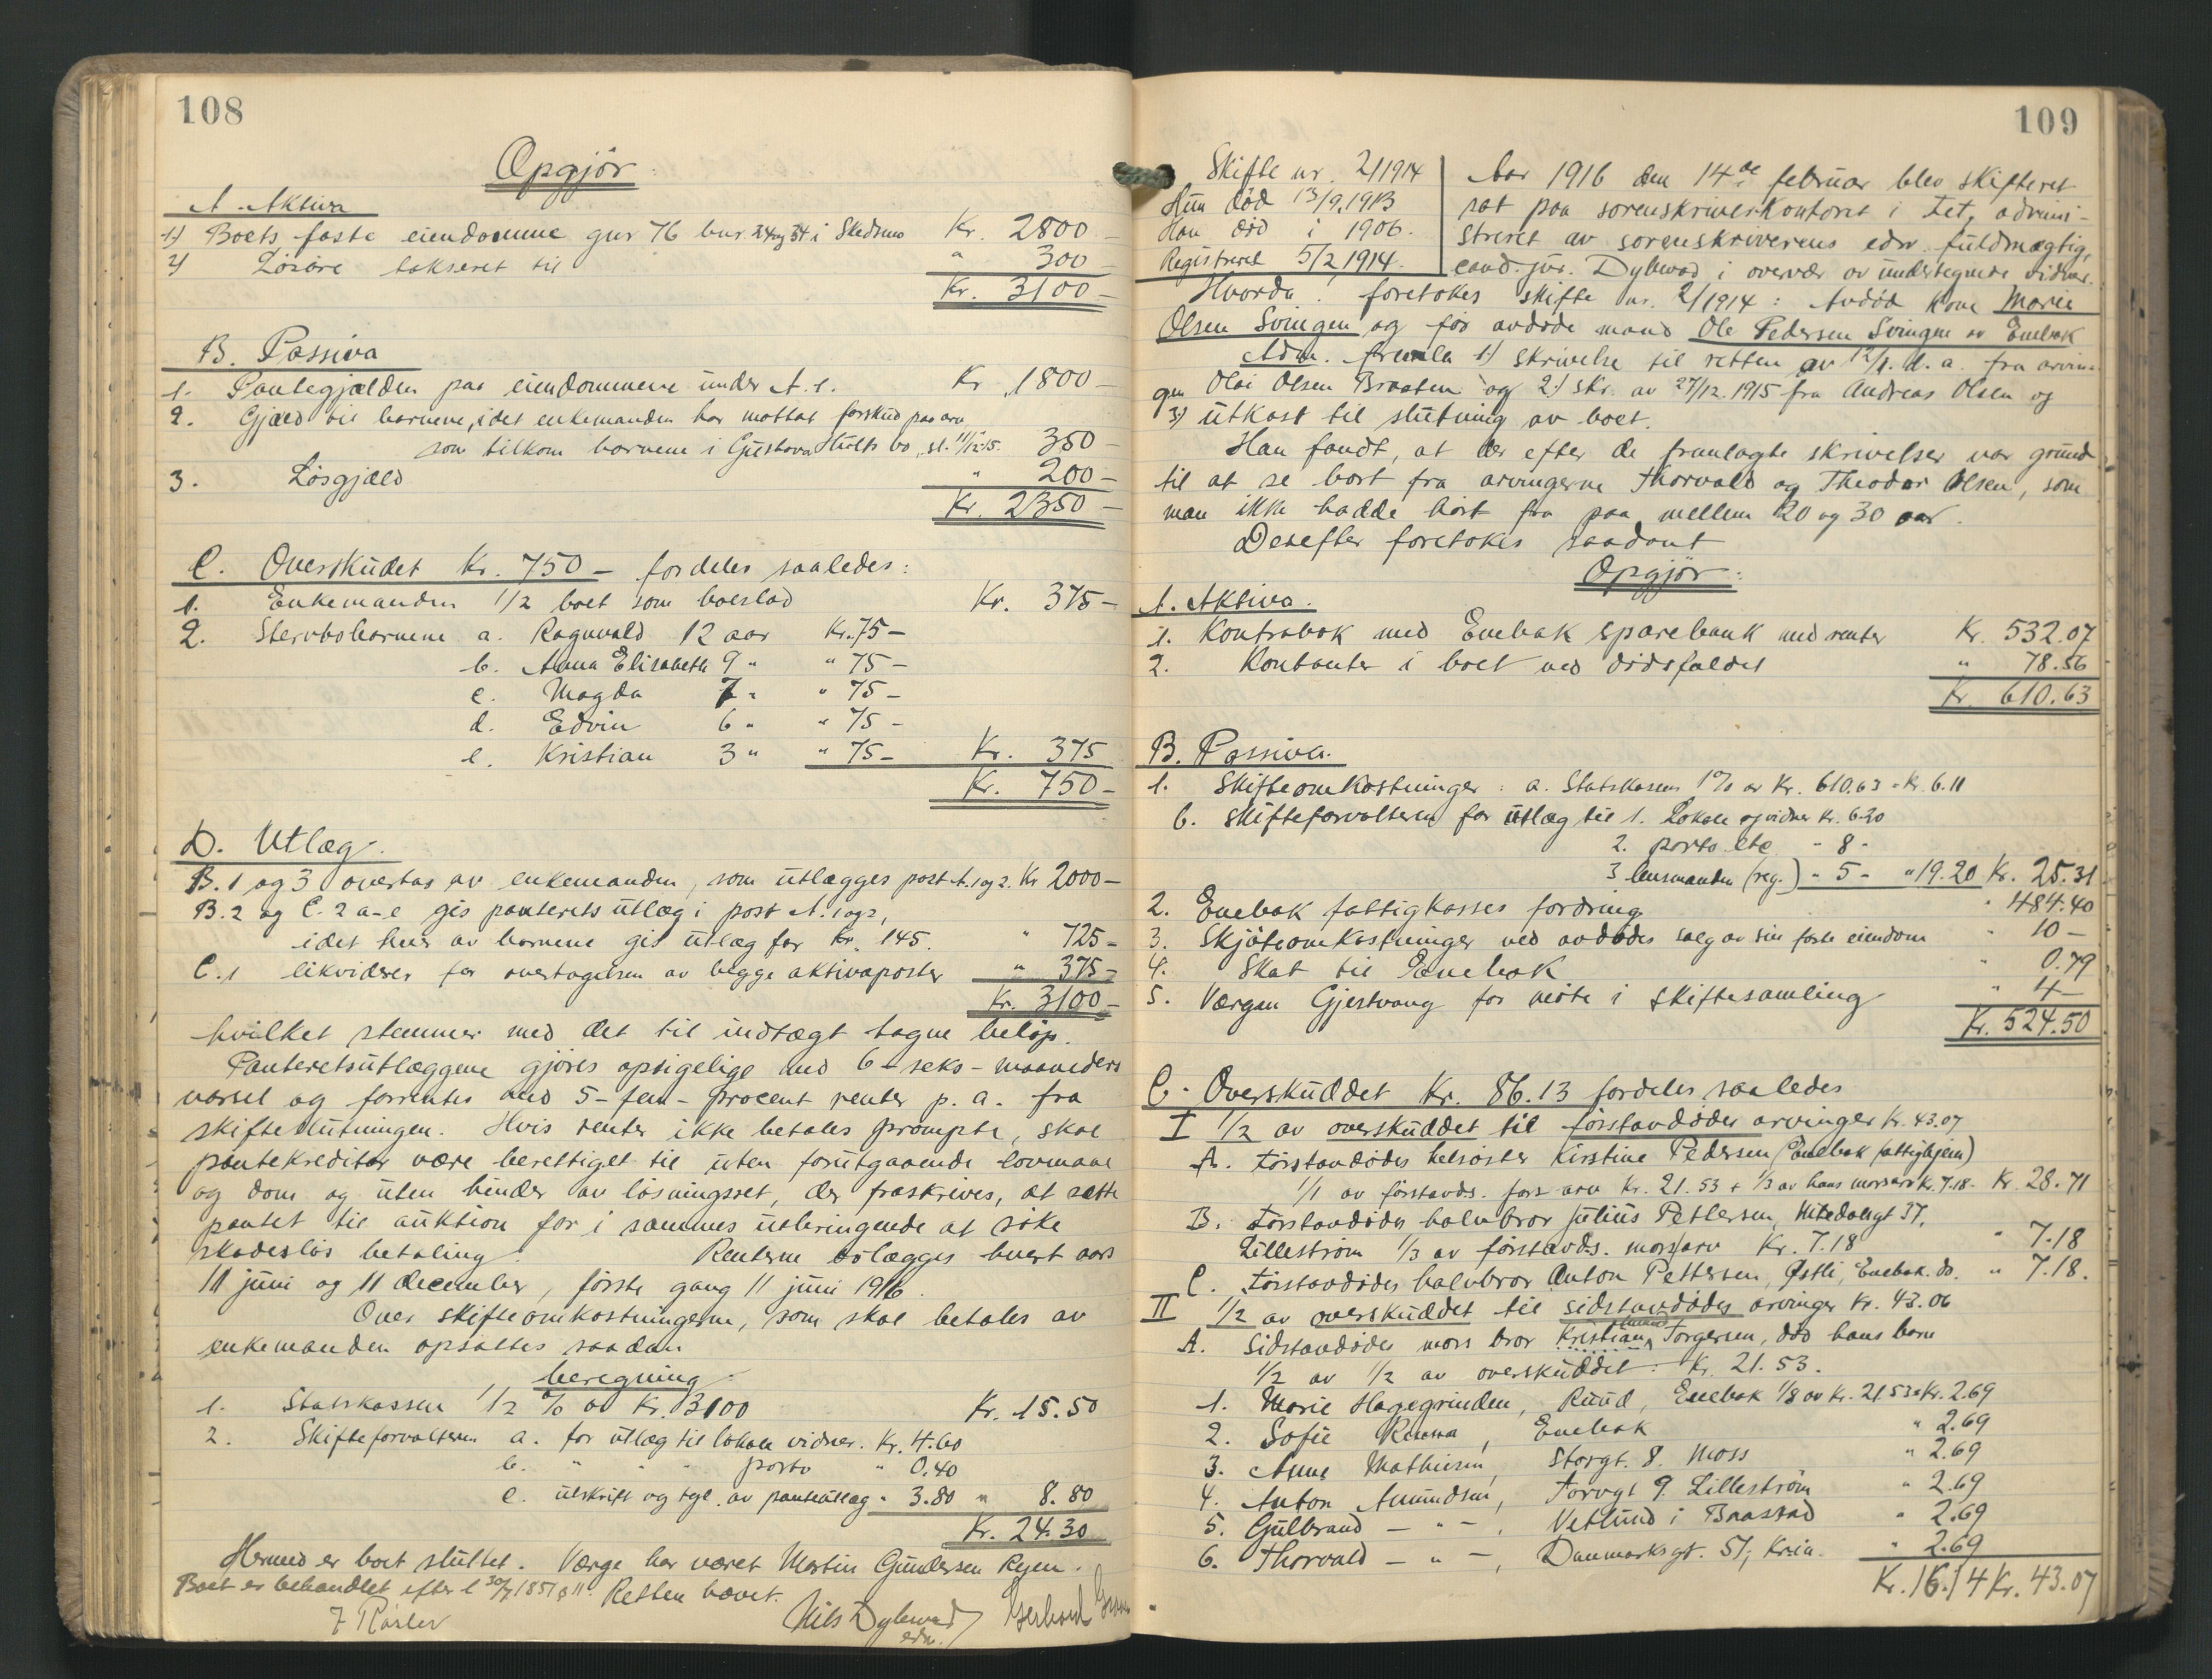 108
Opgjör:
A. Aktiva
1) Boets faste eiendomme gnr 76 bnr. 24 og 34 i Skedsmo Kr. 2800 –
2) Lösöre takseret til " 300 –
Kr. 3100 –
B. Passiva
1. Pantegjælden paa eiendommene under A. 1. Kr. 1800 –
2. Gjæld til barnene, idet enkemanden har mottat forskud paa arv
som tilkom barnene i Gustava Hults bo, sl. 11/12.15. 350 –
3. Lösgjæld " 200 –
Kr. 2350 –
C. Overskudet Kr. 750 – fordeles saaledes:
1. Enkemanden 1/2 boet som boeslod Kr. 375 –
2. Stervbobarnene a. Ragnvald 12 aar Kr. 75 –
b. Anna Elisabeth 9 " " 75 –
c. Magda 7 " " 75 –
d. Edvin 6 " " 75 –
e. Kristian 3 " " 75 – Kr. 375
Kr. 750 –
D. Utlæg.
B. 1 og 3 overtas av enkemanden, som utlægges post A. 1 og 2. Kr 2000 –
B. 2 og C. 2 a–e gis panterets utlæg i post A. 1 og 2,
idet hver av barnene gis utlæg for Kr. 145. " 725 –
C. 1 likviderer for overtagelsen av begge aktivaposter " 375 –
Kr. 3100 –
hvilket stemmer med det til indtægt tagne belöp.
Panteretsutlæggene gjöres opsigelige med 6 – seks – maaneders
varsel og forrentes med 5 – fem – procent renter p. a. fra
skifteslutningen. Hvis renter ikke betales prompte, skal
pantekreditor være berettiget til uten forutgaaende lovmaal
og dom og uten hinder av lösningsret, der fraskrives, at sætte
pantet til auktion for i sammes utbringende at söke
skadeslös betaling. Renterne erlægges hvert aars
11 juni og 11 december, förste gang 11 juni 1916.
Over skifteomkostningerne, som skal betales av
enkemanden opsattes saadan
beregning
1. Statskassen 1/2 % av Kr. 3100 Kr. 15.50
2. Skifteforvalteren a. for utlæg til lokale vidner. Kr. 4.60
b. " " " porto " 0.40
c. utskrift og tgl. av panteutlæg " 3.80 " 8.80
Kr. 24.30
Hermed er boet sluttet. Værge har været Martin Gundersen Rejen.
Boet er behandlet efter l 30/7 1851 § 11. Retten hævet.
Nils Dybwad Gerhard
edv.
109
Skifte nr. 2/1914
Hun död 13/9.1913
Han död i 1906.
Registreret 5/2 1914.
Aar 1916 den 14de februar blev skifteret
sat paa sorenskriverkontoret i Fet, admini-
streret av sorenskriverens edsv. fuldmægtig,
cand. jur. Dybwad i overvær av undertegnede vidner.
Hvorda! foretokes skifte nr. 2/1914: Avdöd kone Marie
Olsen Svingen og för avdöde mand Ole Pedersen Svingen av Enebak
Adm. fremla 1) skrivelse til retten av 12/1. d. a. fra arvin-
gen Olai Olsen Braaten og 2) skr. av 27/12.1915 fra Andreas Olsen og
3) utkast til slutning av boet.
Han fandt, at der efter de fremlagte skrivelser var grund
til at se bort fra arvingerne Thorvald og Theodor Olsen, som
man ikke hadde hört fra paa mellem 20 og 30 aar.
Derefter foretokes saadant
Opgjör:
A. Aktiva.
1. Kontrabok med Enebak sparebank med renter Kr. 532.07
2. Kontanter i boet ved dödsfaldet " 78.56
Kr. 610.63
B. Passiva.
1. Skifteomkostninger: a. Statskassen 1% av Kr. 610.63 = Kr. 6.11
b. skifteforvalteren for utlæg til 1. Lokale og vidner Kr. 6.20
2. porto etc. " 8 "
3 lensmanden (reg.) " 5 – " 19.20 Kr. 25.31
2. Enebak fattigkasses fordring " 484.40
3. Skjöteomkostninger ved avdödes salg av sin faste eiendom " 10 –
4. Skat til Enebak " 0.79
5.Værgen Gjestvang for möte i skiftesamling " 4 –
Kr. 524.50
C. Overskuddet Kr. 86.13 fordeles saaledes
I 1/2 av overskuddet til förstavdödes arvinger Kr. 43.07
A. Förstavdödes helsöster Kirstine Pedersen (Enebak fattighjem)
1/1 av förstavds. fars arv Kr. 21.53 + 1/3 av hans mors arv Kr. 7.18 – Kr. 28.71
B. Förstavdödes halvbror Julius Pettersen, Nitedalsgt 37,
Lilleström 1/3 av förstavds. mors arv Kr. 7.18 " 7.18
C. Förstavdödes halvbror Anton Pettersen, Östli, Enebak. do. " 7.18.
II 1/2 av overskuddet til sidstavdödes arvinger Kr. 43.06
A. Sidstavdödes mors bror Kristian Torgersen, död hans barn
1/2 av 1/2 av overskuddet: Kr. 21.53.
1. Marie Hagegrinden, Ruud, Enebak 1/8 av Kr. 21.53 = Kr. 2.69
2. Sofie , Enebak " 2.69
3. Anne Mathisen, Storgt. 8. Moss " 2.69
4. Anton Amundsen, Torvgt 9. Lilleström " 2.69
5. Gulbrand – " –, Vetlund i Baastad " 2.69
6. Thorvald – " –, Danmarksgt. 51, Kria. " 2.69
Kr. 16.14 Kr. 43.07